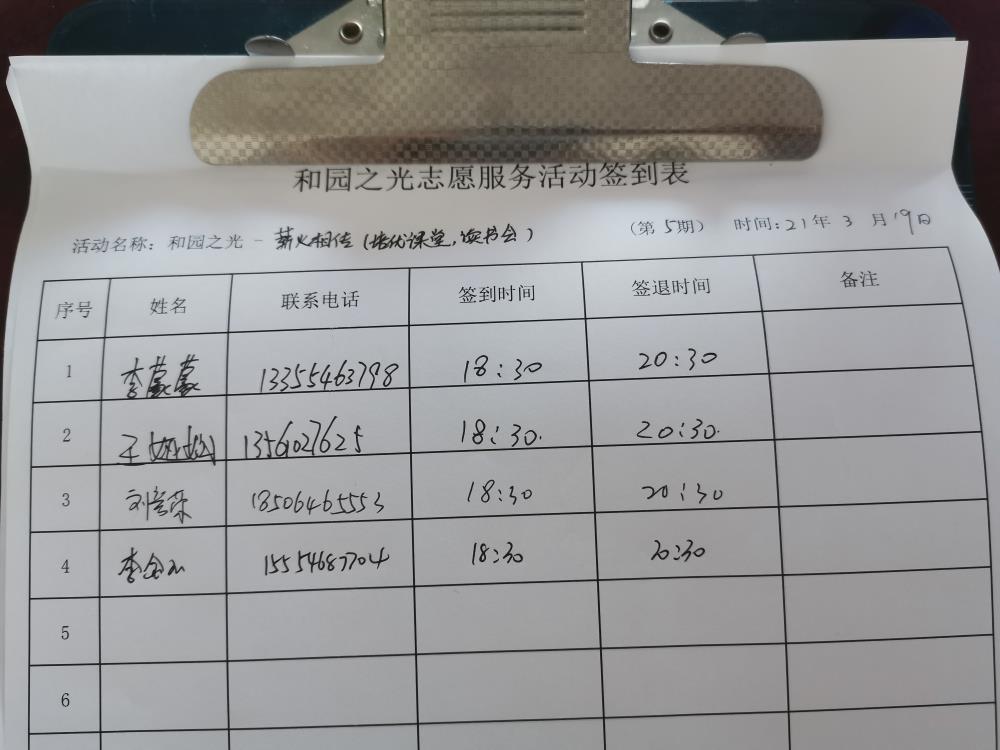 和园之光志愿服务活动签到表
活动名称：和园之光 - 薪火相传（培优课堂，读书会） （第5期） 时间：21年 3 月 19日
序号 姓名 联系电话 签到时间 签退时间 备注
1 李蒙蒙 13355463798 18:30 20:30
2 王 1356027625 18:30. 20:30.
3 刘 18506465553 18:30 20:30
4 李 15554687704 18:30 20:30
5
6